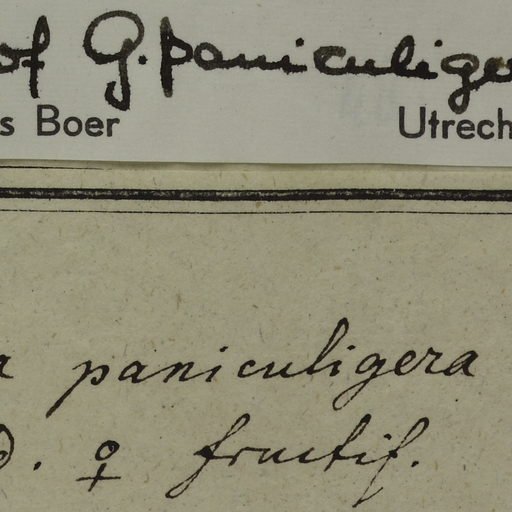 of G. paniculige
s Boer Utrech
a paniculigera
d. ♀ fructif.